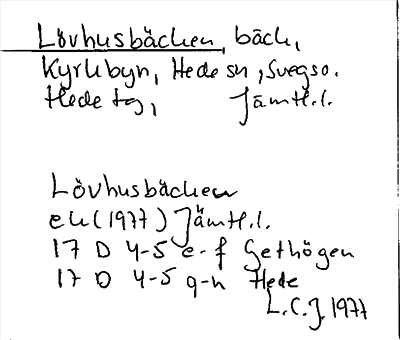 Lövhusbäcken, bäck,
Kyrkbyn, Hede sn, Svegs o.
Hede tg, Jämtl.l.
Lövhusbäcken
ek (1977) Jämtl.l.
17 D 4-5 e-f Gethögen
17 D 4-5 g-h Hede
L.C.J. 1977